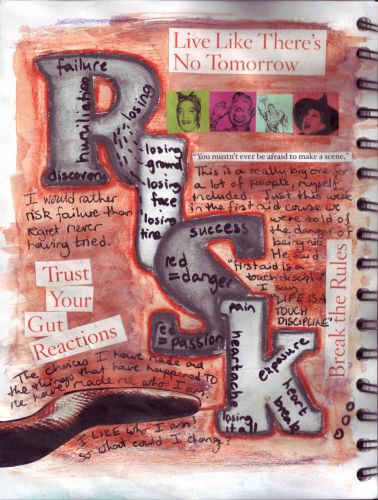 Live Like There's
No Tomorrow
"You mustn't ever be afraid to make a scene."
RISK
failure
humiliation
losing
discovery
losing
ground
losing
face
losing
time
success
red
=danger
red
=passion
pain
heartache
losing
it all
exposure
heart
break
This is a really big one for
a lot of people, myself
included. Just this week
in the first aid course we
were told of
the danger of
being
He said
"First aid is a
touch discipline"
I say
"LIFE IS A
TOUCH
DISCIPLINE"
I would rather
risk failure than
regret never
having tried.
Trust
Your
Gut
Reactions
Break the Rules
The choices I have made and
the things that have happened to
me have made me who I am.
I LIKE who I am!
so what could I change?